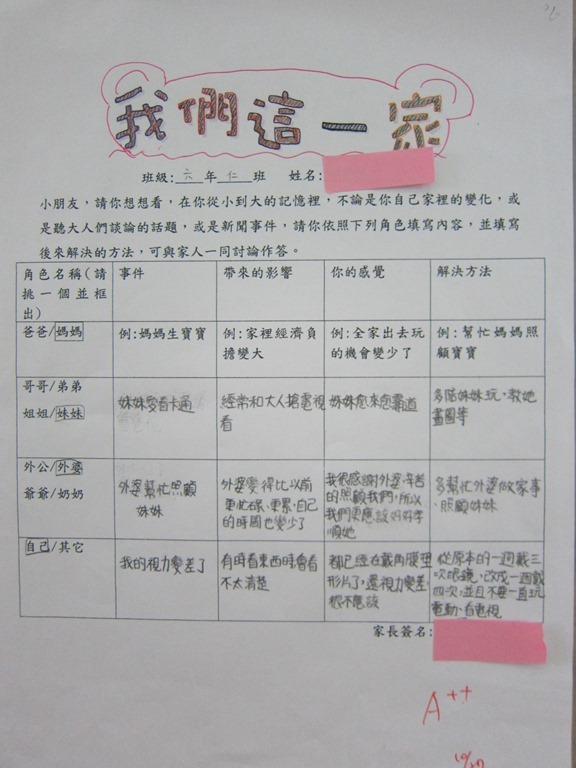 我們這一家
班級:六年仁班 姓名:
小朋友，請你想想看，在你從小到大的記憶裡，不論是你自己家裡的變化，或
是聽大人們談論的話題，或是新聞事件，請你依照下列角色填寫內容，並填寫
後來解決的方法，可與家人一同討論作答。
角色名稱(請
挑一個並框
出)
事件
帶來的影響
你的感覺
解決方法
爸爸/媽媽
例:媽媽生寶寶
例:家裡經濟負
擔變大
例:全家出去玩
的機會變少了
例:幫忙媽媽照
顧寶寶
哥哥/弟弟
姐姐/妹妹
妹妹愛看卡通
經常和大人搶電視
看
妹妹愈來愈霸道
多陪妹妹玩,教她
畫圖等
外公/外婆
爺爺/奶奶
外婆幫忙照顧
妹妹
外婆變得比以前
更忙碌、更累,自己
的時間也變少了
我很感謝外婆
的照顧我們,所以
我們更應該好好孝
順她
多幫忙外婆做家事
、照顧妹妹
自己/其它
我的視力變差了
有時看東西時會看
不太清楚
都已經在戴角膜塑
形片了,還視力變差,
很不應該
從原本的一週戴三
次眼鏡,改成一週戴
四次,並且不要一直玩
電動、看電視
家長簽名:
A++